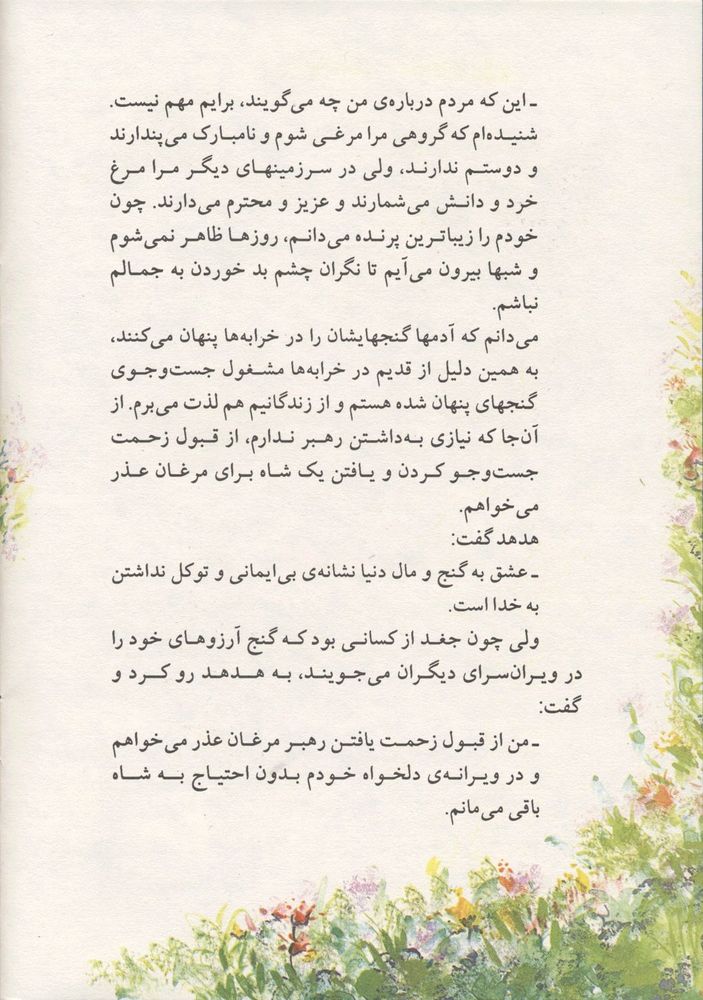 ـ این که مردم درباره‌ی من چه می‌گویند، برایم مهم نیست.
شنیده‌ام که گروهی مرا مرغی شوم و نامبارک می‌پندارند
و دوستم ندارند، ولی در سرزمینهای دیگر مرا مرغ
خرد و دانش می‌شمارند و عزیز و محترم می‌دارند. چون
خودم را زیباترین پرنده می‌دانم، روزها ظاهر نمی‌شوم
و شبها بیرون می‌آیم تا نگران چشم بد خوردن به جمالم
نباشم.
می‌دانم که آدمها گنجهایشان را در خرابه‌ها پنهان می‌کنند،
به همین دلیل از قدیم در خرابه‌ها مشغول جست‌وجوی
گنجهای پنهان شده هستم و از زندگانیم هم لذت می‌برم. از
آن‌جا که نیازی به‌داشتن رهبر ندارم، از قبول زحمت
جست‌وجو کردن و یافتن یک شاه برای مرغان عذر
می‌خواهم.
هدهد گفت:
ـ عشق به گنج و مال دنیا نشانه‌ی بی‌ایمانی و توکل نداشتن
به خدا است.
ولی چون جغد از کسانی بود که گنج آرزوهای خود را
در ویران‌سرای دیگران می‌جویند، به هدهد رو کرد و
گفت:
ـ من از قبول زحمت یافتن رهبر مرغان عذر می‌خواهم
و در ویرانه‌ی دلخواه خودم بدون احتیاج به شاه
باقی می‌مانم.